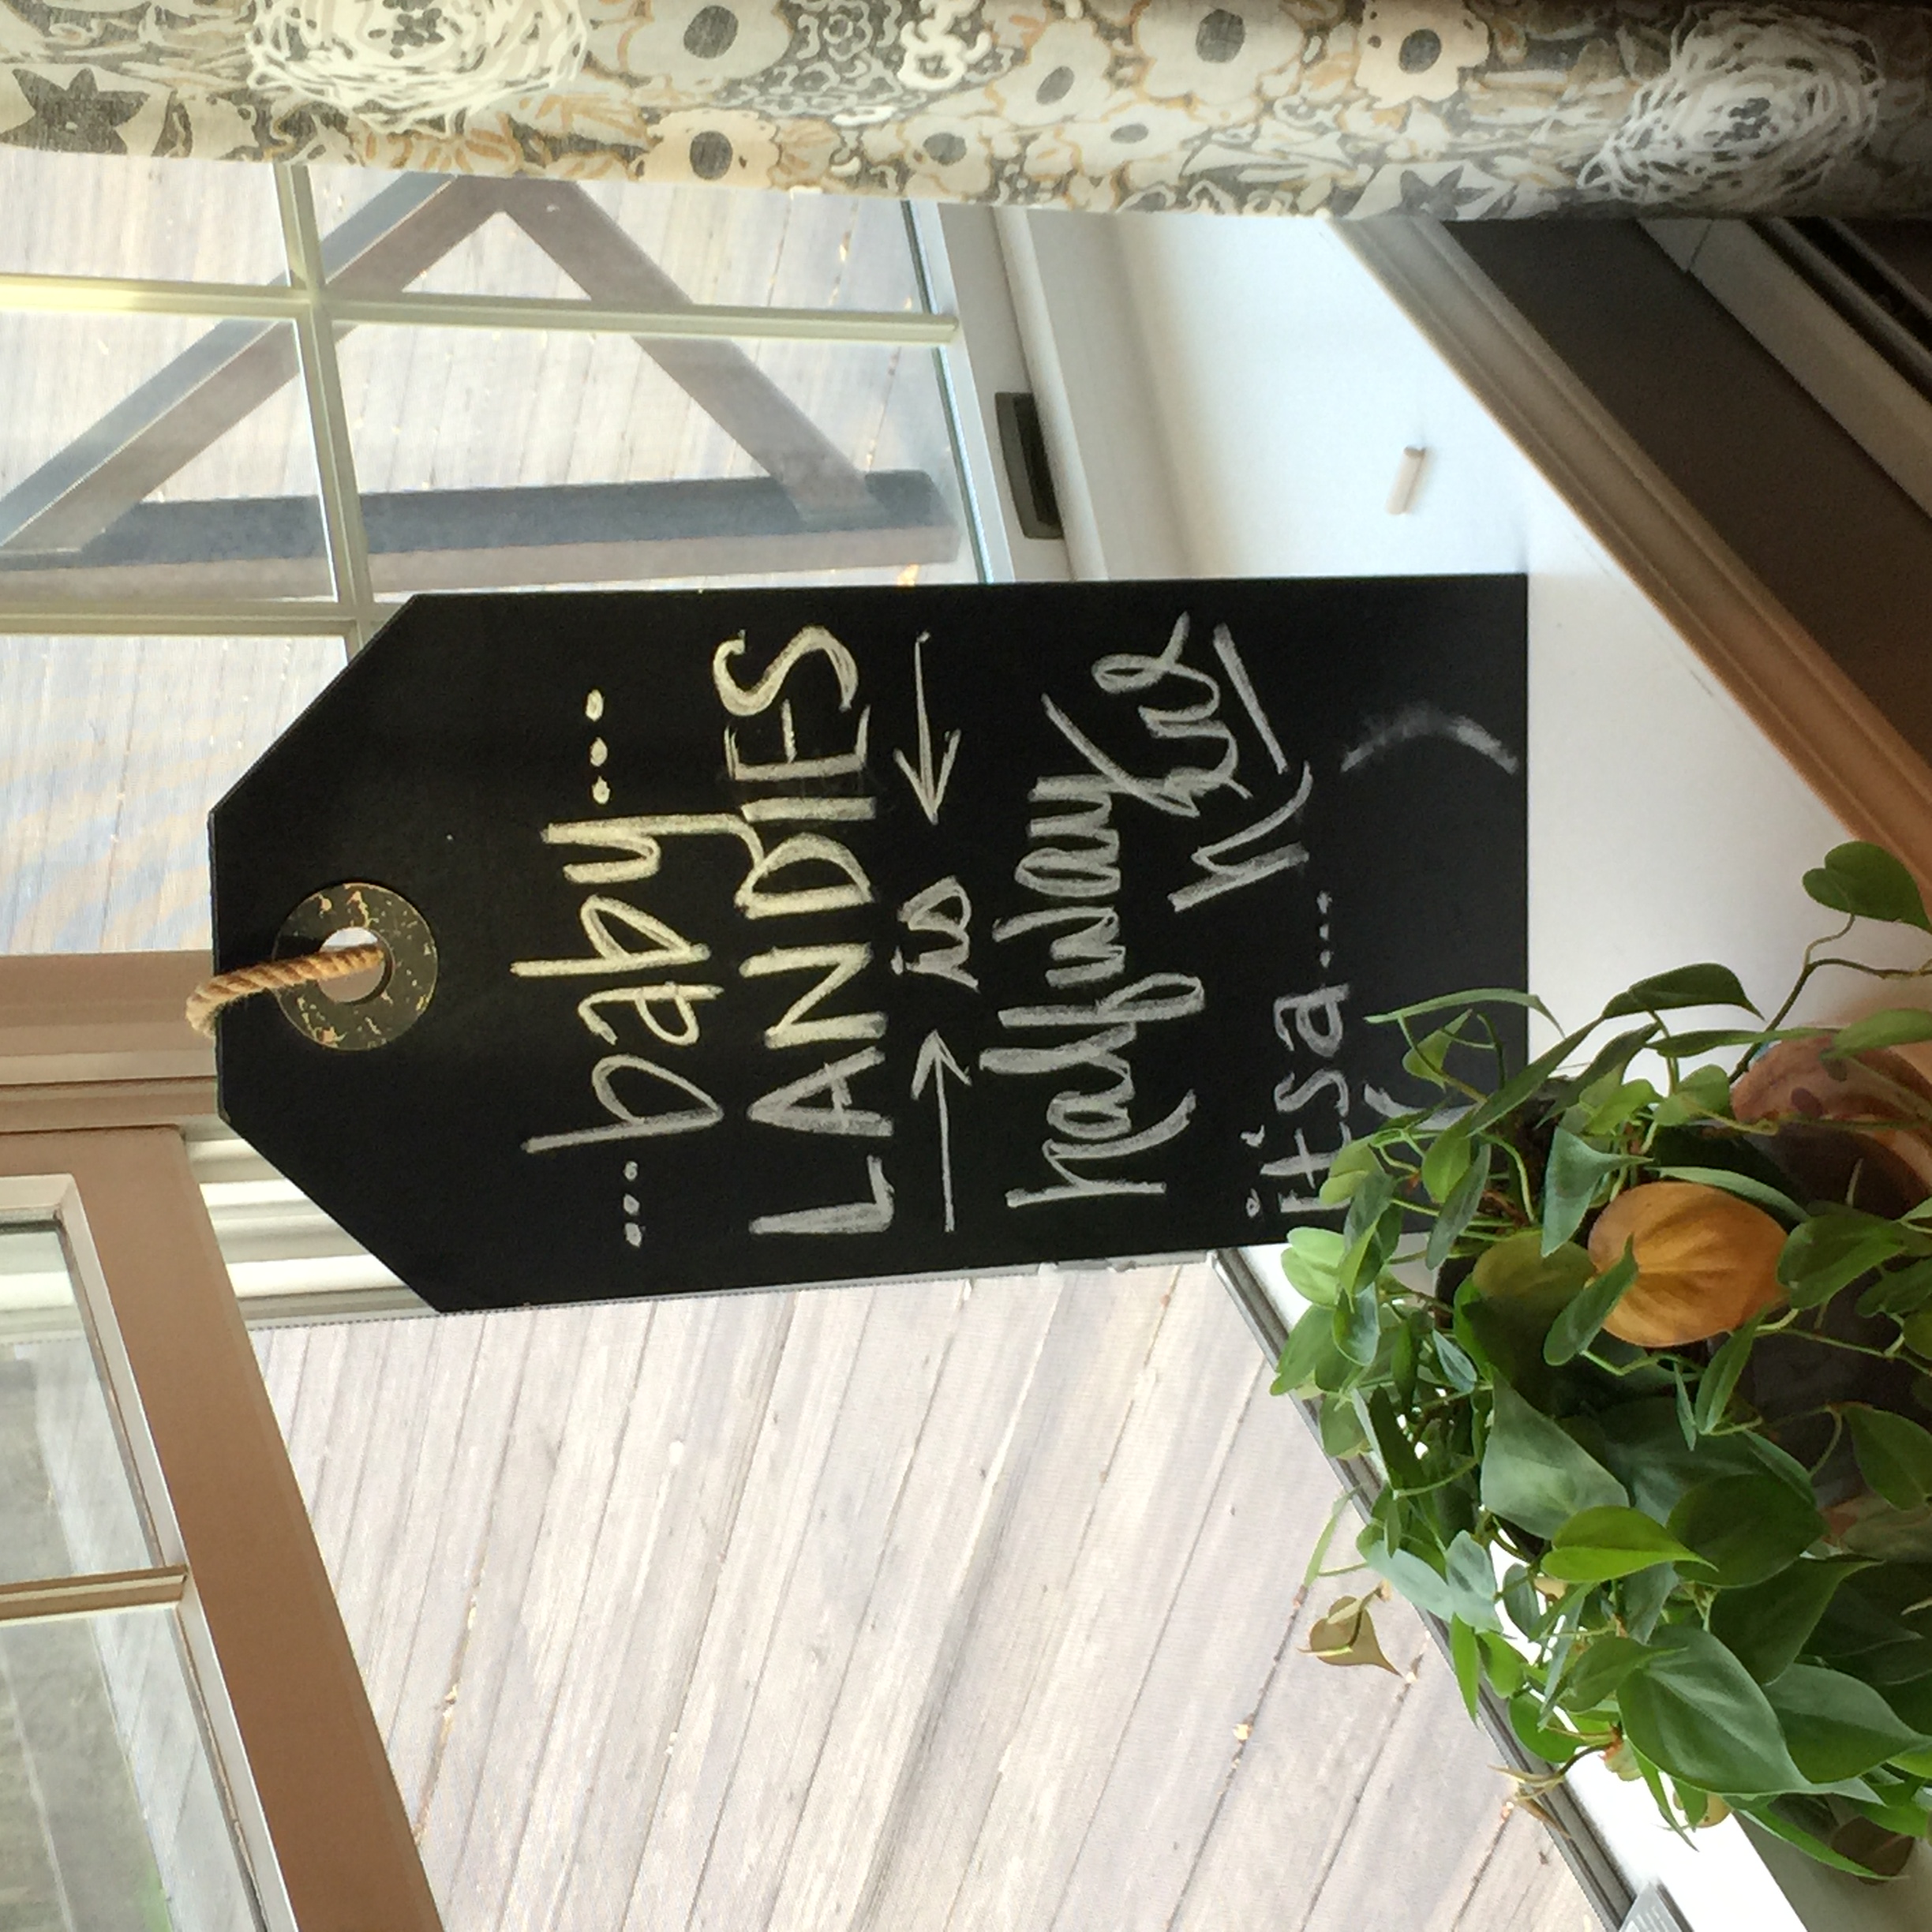 ...baby...
LANDIES
→ is ←
halfway
here
it's a...
( )